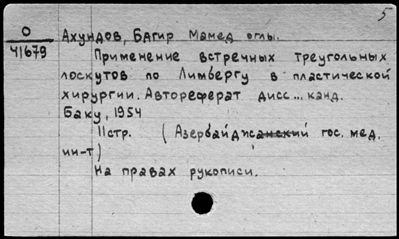 5
О
41679
Ахундов, Багир Мамед оглы.
Применение встречных треугольных
лоскутов по Лимбергу в пластической
хирургии. Автореферат дисс... канд.
Баку, 1954
11стр. (Азербайджанский гос. мед.
ин-т)
На правах рукописи.